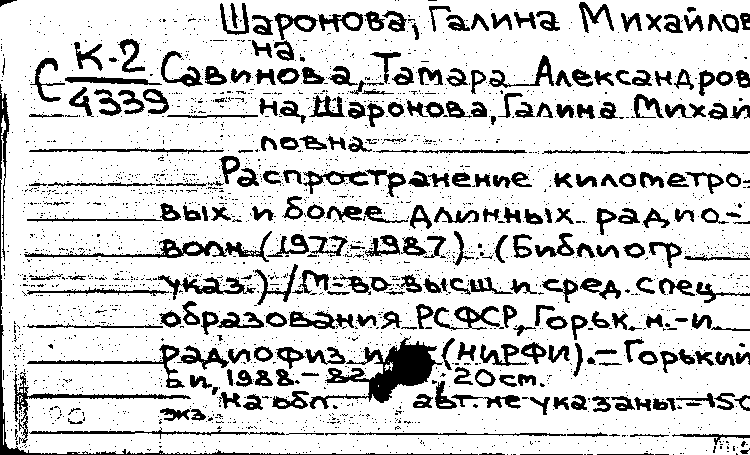 Шаронова, Галина Михайлов
на.
С К-2 Савинова, Тамара Александров
4339 на, Шаронова, Галина Михай
ловна
Распространение километро-
вых и более длинных радио-
волн (1977-1987): (Библиогр
указ.) / М-во высш и сред. спец
образования РСФСР, Горьк. н.-и
радиофиз. и (НИРФИ). - Горький
Б и, 1988. - 82 , 20 см.
На обл. авт. не указаны. - 150
экз.